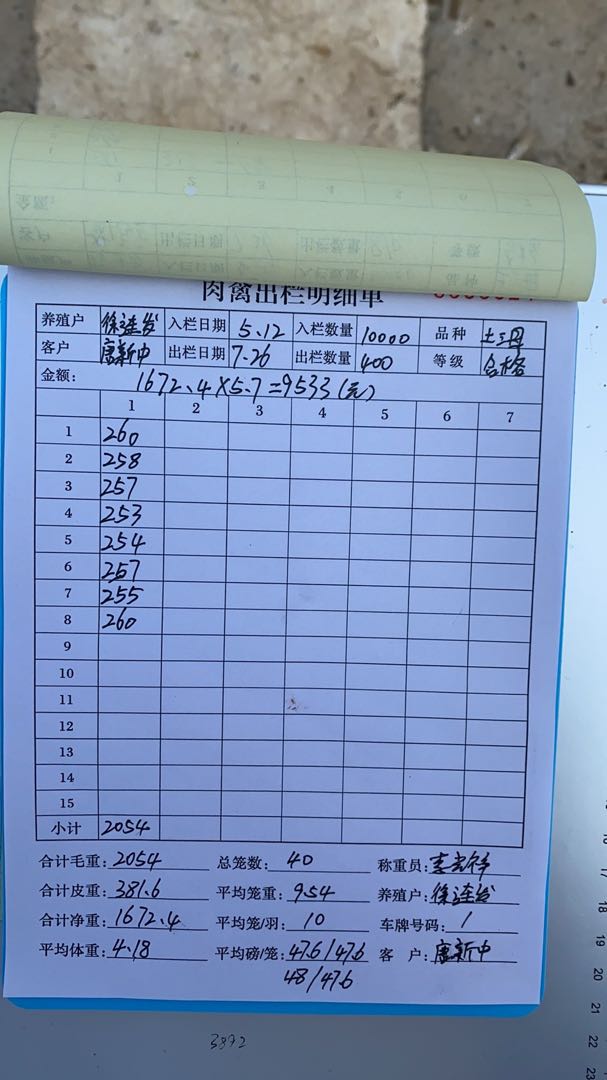 肉禽出栏明细单
养殖户 徐连发 入栏日期 5.12 入栏数量 10000 品种 土三母
客户 唐新中 出栏日期 7.26 出栏数量 400 等级 合格
金额: 1672.4×5.7=9533(元)
1 2 3 4 5 6 7
1 260
2 258
3 257
4 253
5 254
6 257
7 255
8 260
9
10
11
12
13
14
15
小计 2054
合计毛重: 2054 总笼数: 40 称重员:
合计皮重: 381.6 平均笼重: 9.54 养殖户: 徐连发
合计净重: 1672.4 平均笼/羽: 10 车牌号码: /
平均体重: 4.18 平均磅/笼: 47.6/47.6 客户: 唐新中
48/47.6
3872
16
17
18
19
20
21
22
23